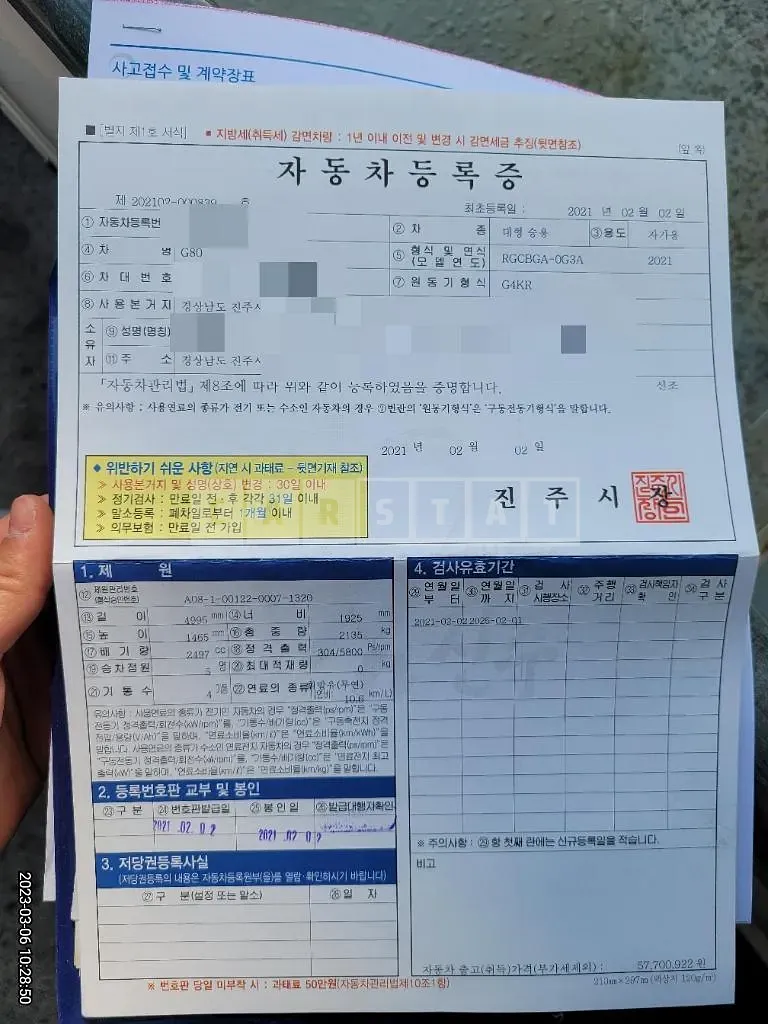 사고접수 및 계약장표
■ [별지 제1호 서식] ■ 지방세(취득세) 감면차량 : 1년 이내 이전 및 변경 시 감면세금 추징(뒷면참조) (앞 쪽)
자동차등록증
제 202102-000839 호 최초등록일 : 2021 년 02 월 02 일
① 자동차등록번 ② 차 종 대형 승용 ③용도 자가용
④ 차 명 G80 ⑤ 형식 및 연식 (모델연도) RGCBGA-0G3A 2021
⑥ 차 대 번 호 ⑦ 원동기형식 G4KR
⑧ 사용본거지 경상남도 진주시
소유자 ⑨ 성명(명칭)
⑪ 주 소 경상남도 진주시
「자동차관리법」 제8조에 따라 위와 같이 등록하였음을 증명합니다. 신조
※ 유의사항 : 사용연료의 종류가 전기 또는 수소인 자동차의 경우 ⑦번란의 '원동기형식'은 '구동전동기형식'을 말합니다.
2021 년 02 월 02 일
◆ 위반하기 쉬운 사항(지연 시 과태료 - 뒷면기재 참조)
≫ 사용본거지 및 성명(상호) 변경 : 30일 이내
≫ 정기검사 : 만료일 전·후 각각 31일 이내
≫ 말소등록 : 폐차일로부터 1개월 이내
≫ 의무보험 : 만료일 전 가입
진 주 시 장
CARSTAT
1. 제 원
⑫ 제원관리번호 (형식승인번호) A08-1-00122-0007-1320
⑬ 길 이 4995 mm ⑭ 너 비 1925 mm
⑮ 높 이 1465 mm ⑯ 총 중 량 2135 kg
⑰ 배 기 량 2497 cc ⑱ 정격출력 304/5800 Ps/rpm
⑲ 승차정원 5 명 ⑳ 최대적재량 0 kg
㉑ 기 통 수 4 기통 ㉒ 연료의 종류 휘발유(무연) (연비 10.6 km/L)
유의사항 : 사용연료의 종류가 전기인 자동차의 경우 "정격출력(ps/rpm)"은 "구동
전동기 정격출력/회전수(kW/rpm)"를, "기통수/배기량(cc)"은 "구동축전지 정격
전압/용량(V/Ah)"을 말하며, "연료소비율(km/ℓ)"은 "연료소비율(km/kWh)"을
말합니다. 사용연료의 종류가 수소인 연료전지 자동차의 경우 "정격출력(ps/rpm)"은
"구동전동기 정격출력/회전수(kW/rpm)"를, "기통수/배기량(cc)"은 "연료전지 최고
출력(kW)"을 말하며, "연료소비율(km/ℓ)"은 "연료소비율(km/kg)"을 말합니다.
2. 등록번호판 교부 및 봉인
㉓ 구 분 ㉔ 번호판발급일 ㉕ 봉 인 일 ㉖ 발급대행자확인
2021 .02. 0 2 2021 .02. 0 2
3. 저당권등록사실
(저당권등록의 내용은 자동차등록원부(을)를 열람·확인하시기 바랍니다)
㉗ 구 분(설정 또는 말소) ㉘ 일 자
4. 검사유효기간
㉙ 연월일 부 터 ㉚ 연월일 까 지 ㉛ 검 사 시행장소 ㉜ 주행 거리 ㉝ 검사책임자 확 인 ㉞ 검 사 구 분
2021-02-02 2025-02-01
※ 주의사항 : ㉙ 항 첫째 란에는 신규등록일을 적습니다.
비고
자동차 출고(취득)가격(부가세제외) : 57,700,922 원
※ 번호판 당일 미부착 시 : 과태료 50만원(자동차관리법제10조1항) 210㎜×297㎜(백상지 120g/㎡)
2023-03-06 10:28:50